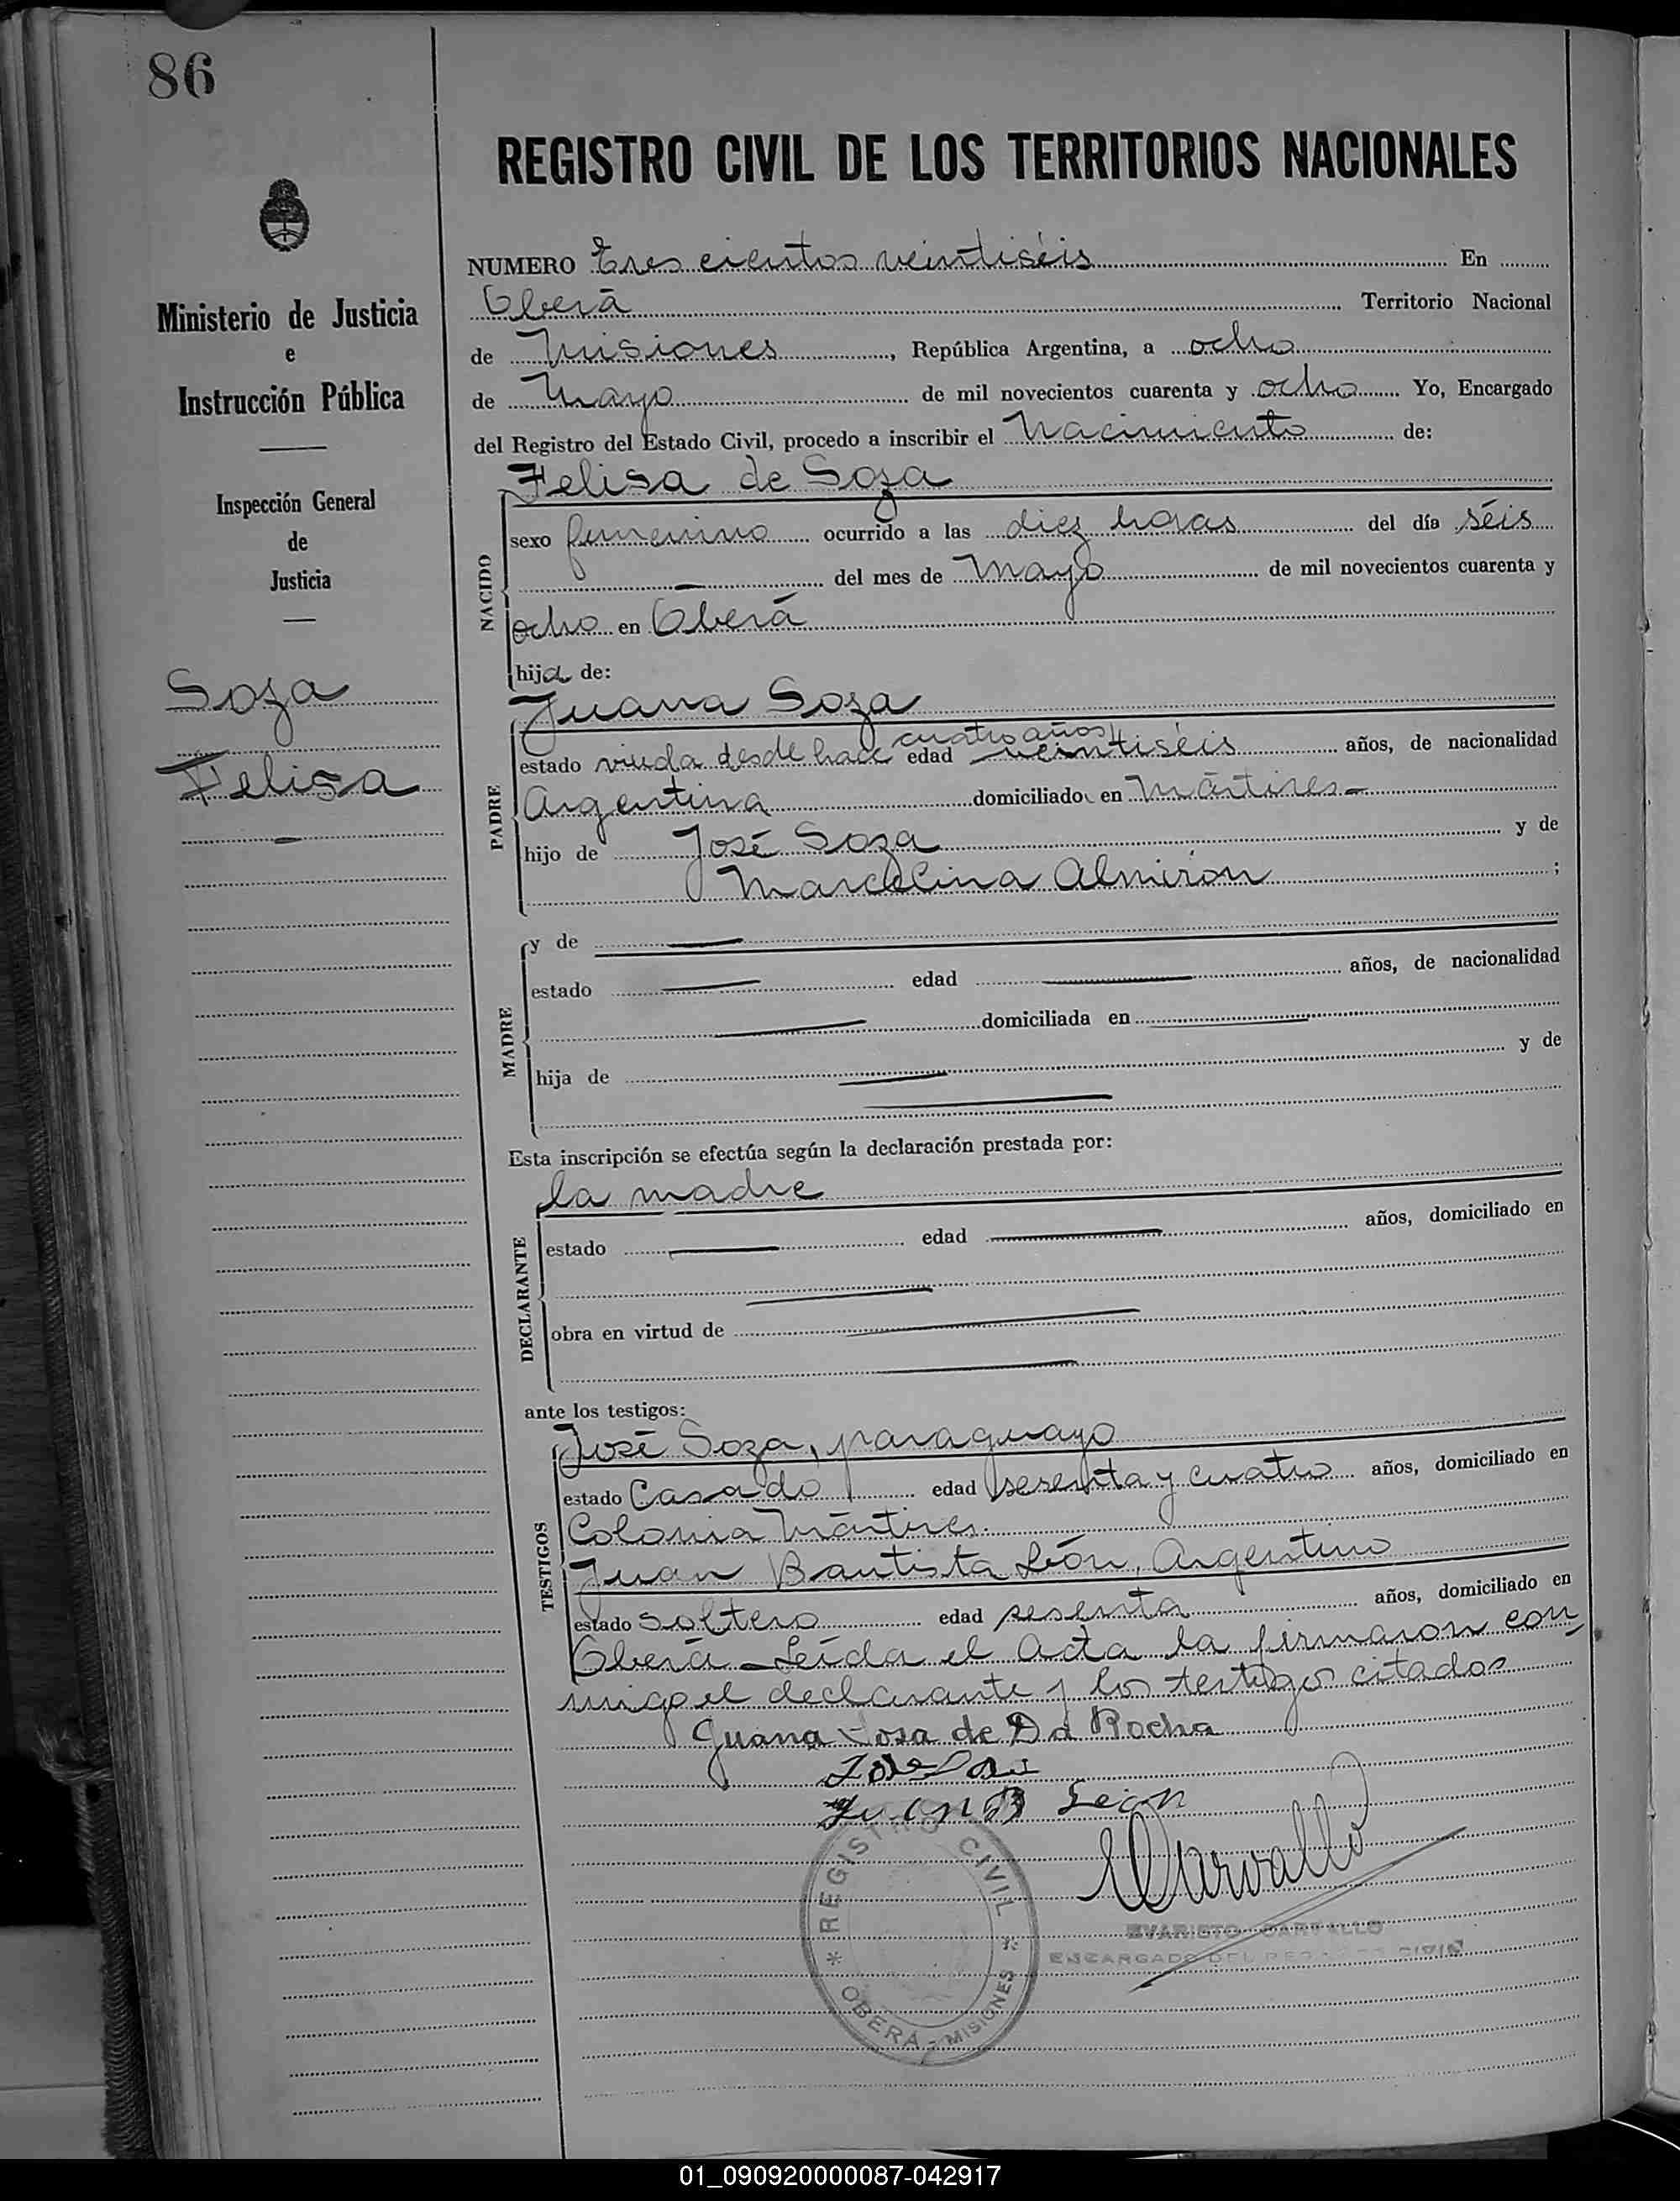 86
REGISTRO CIVIL DE LOS TERRITORIOS NACIONALES
Ministerio de Justicia
e
Instrucción Pública
Inspección General
de
Justicia
Soza
Felisa
NUMERO Tres cientos veintiséis En
Oberá Territorio Nacional
de Misiones, República Argentina, a ocho
de Mayo de mil novecientos cuarenta y ocho Yo, Encargado
del Registro del Estado Civil, procedo a inscribir el Nacimiento de:
Felisa de Soza
NACIDO
sexo femenino ocurrido a las diez horas del día séis
— del mes de Mayo de mil novecientos cuarenta y
ocho en Oberá
hija de:
Juana Soza
PADRE
cuatro años
estado viuda desde hace edad veintiséis años, de nacionalidad
Argentina domiciliado en Mártires -
hijo de José Soza y de
Marcelina Almirón ;
MADRE
y de —
estado — edad — años, de nacionalidad
— domiciliada en —
hija de — y de
—
Esta inscripción se efectúa según la declaración prestada por:
la madre
DECLARANTE
estado — edad — años, domiciliado en
—
obra en virtud de —
—
ante los testigos:
José Soza, paraguayo
TESTIGOS
estado Casado edad sesenta y cuatro años, domiciliado en
Colonia Mártires.
Juan Bautista León, Argentino
estado soltero edad sesenta años, domiciliado en
Oberá - Leída el Acta la firmaron con
migo el declarante y los testigos citados
Juana Sosa de Da Rocha
Juan B León
Carvallo
EVARISTO CARVALLO
ENCARGADO DEL REGISTRO CIVIL
* REGISTRO CIVIL *
OBERÁ - MISIONES
01_090920000087-042917